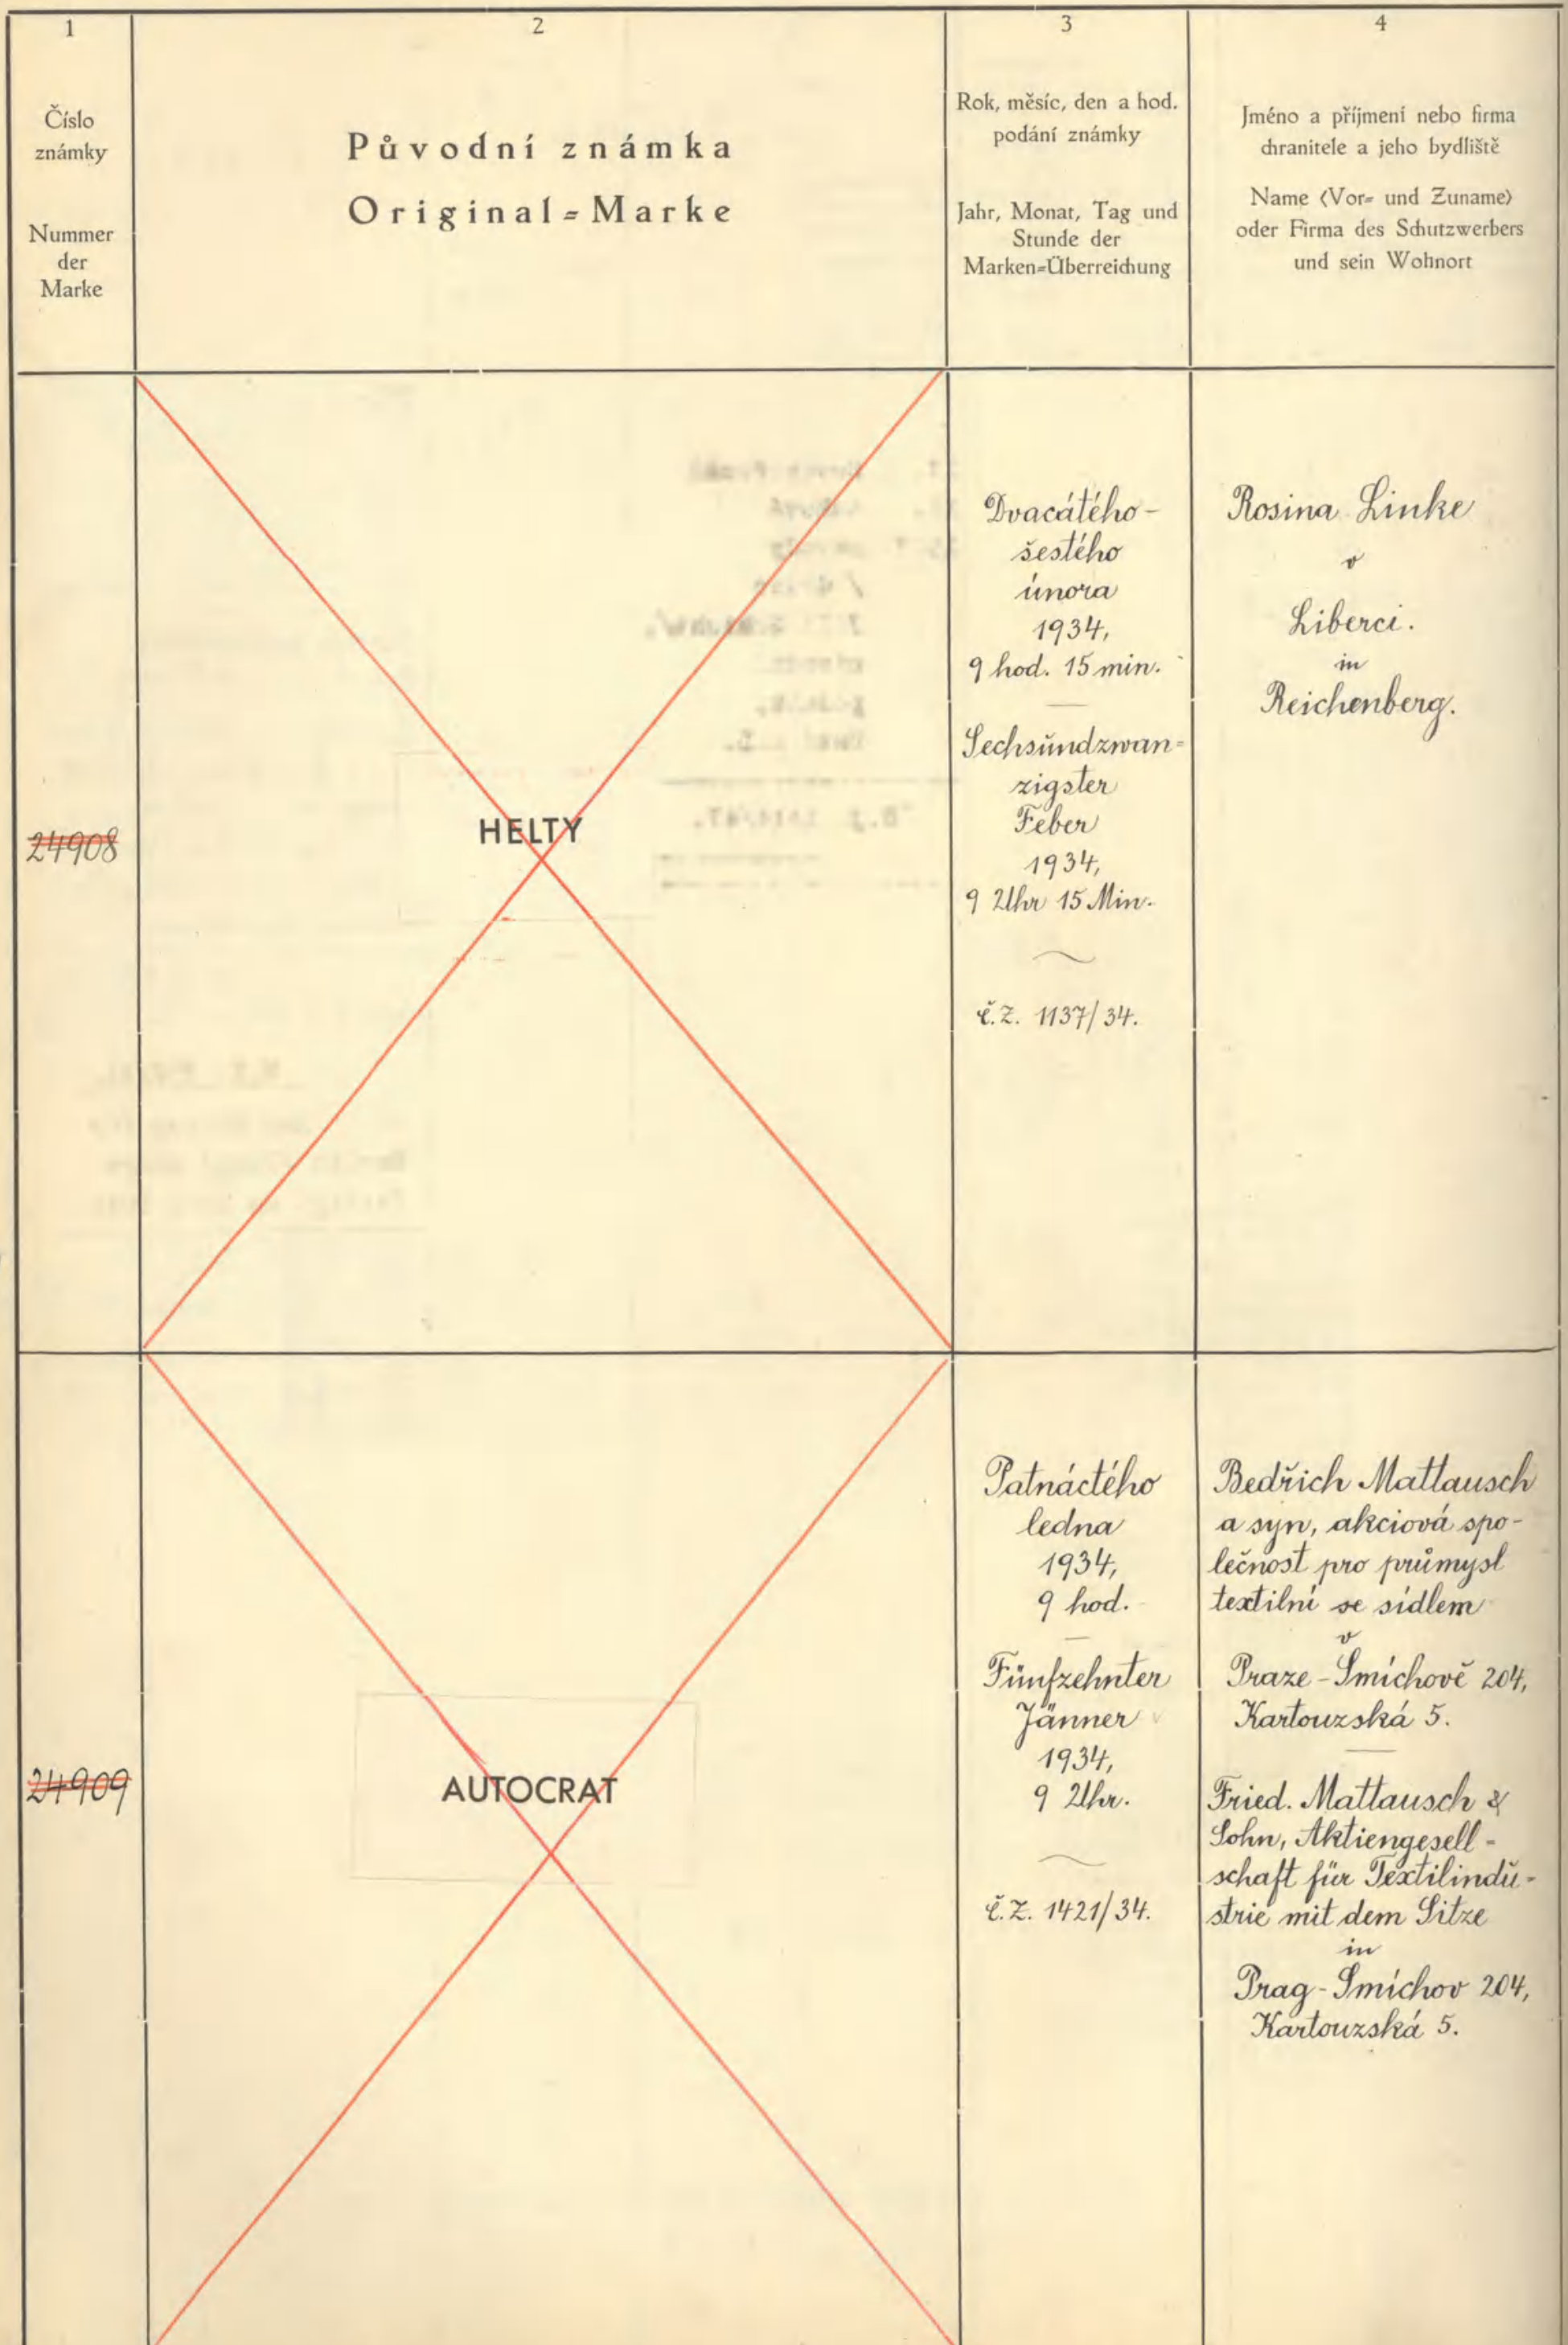 1
Číslo
známky
Nummer
der
Marke
2
Původní známka
Original=Marke
3
Rok, měsíc, den a hod.
podání známky
Jahr, Monat, Tag und
Stunde der
Marken=Überreichung
4
Jméno a příjmení nebo firma
chranitele a jeho bydliště
Name (Vor= und Zuname)
oder Firma des Schutzwerbers
und sein Wohnort
24908
HELTY
Dvacátého-
šestého
února
1934,
9 hod. 15 min.
Sechsundzwan=
zigster
Feber
1934,
9 Uhr 15 Min.
č.Z. 1137/34.
Rosina Linke
v
Liberci.
in
Reichenberg.
24909
AUTOCRAT
Patnáctého
ledna
1934,
9 hod.
Fünfzehnter
Jänner
1934,
9 Uhr.
č.Z. 1421/34.
Bedřich Mattausch
a syn, akciová spo-
lečnost pro průmysl
textilní se sídlem
v
Praze-Smíchově 204,
Kartouzská 5.
Fried. Mattausch &
Sohn, Aktiengesell-
schaft für Textilindu-
strie mit dem Sitze
in
Prag-Smíchov 204,
Kartouzská 5.